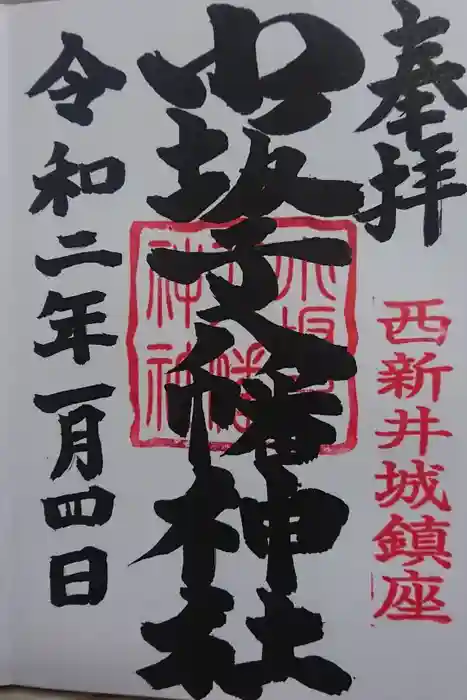 奉拝
西新井城鎮座
小坂子八幡神社
令和二年一月四日